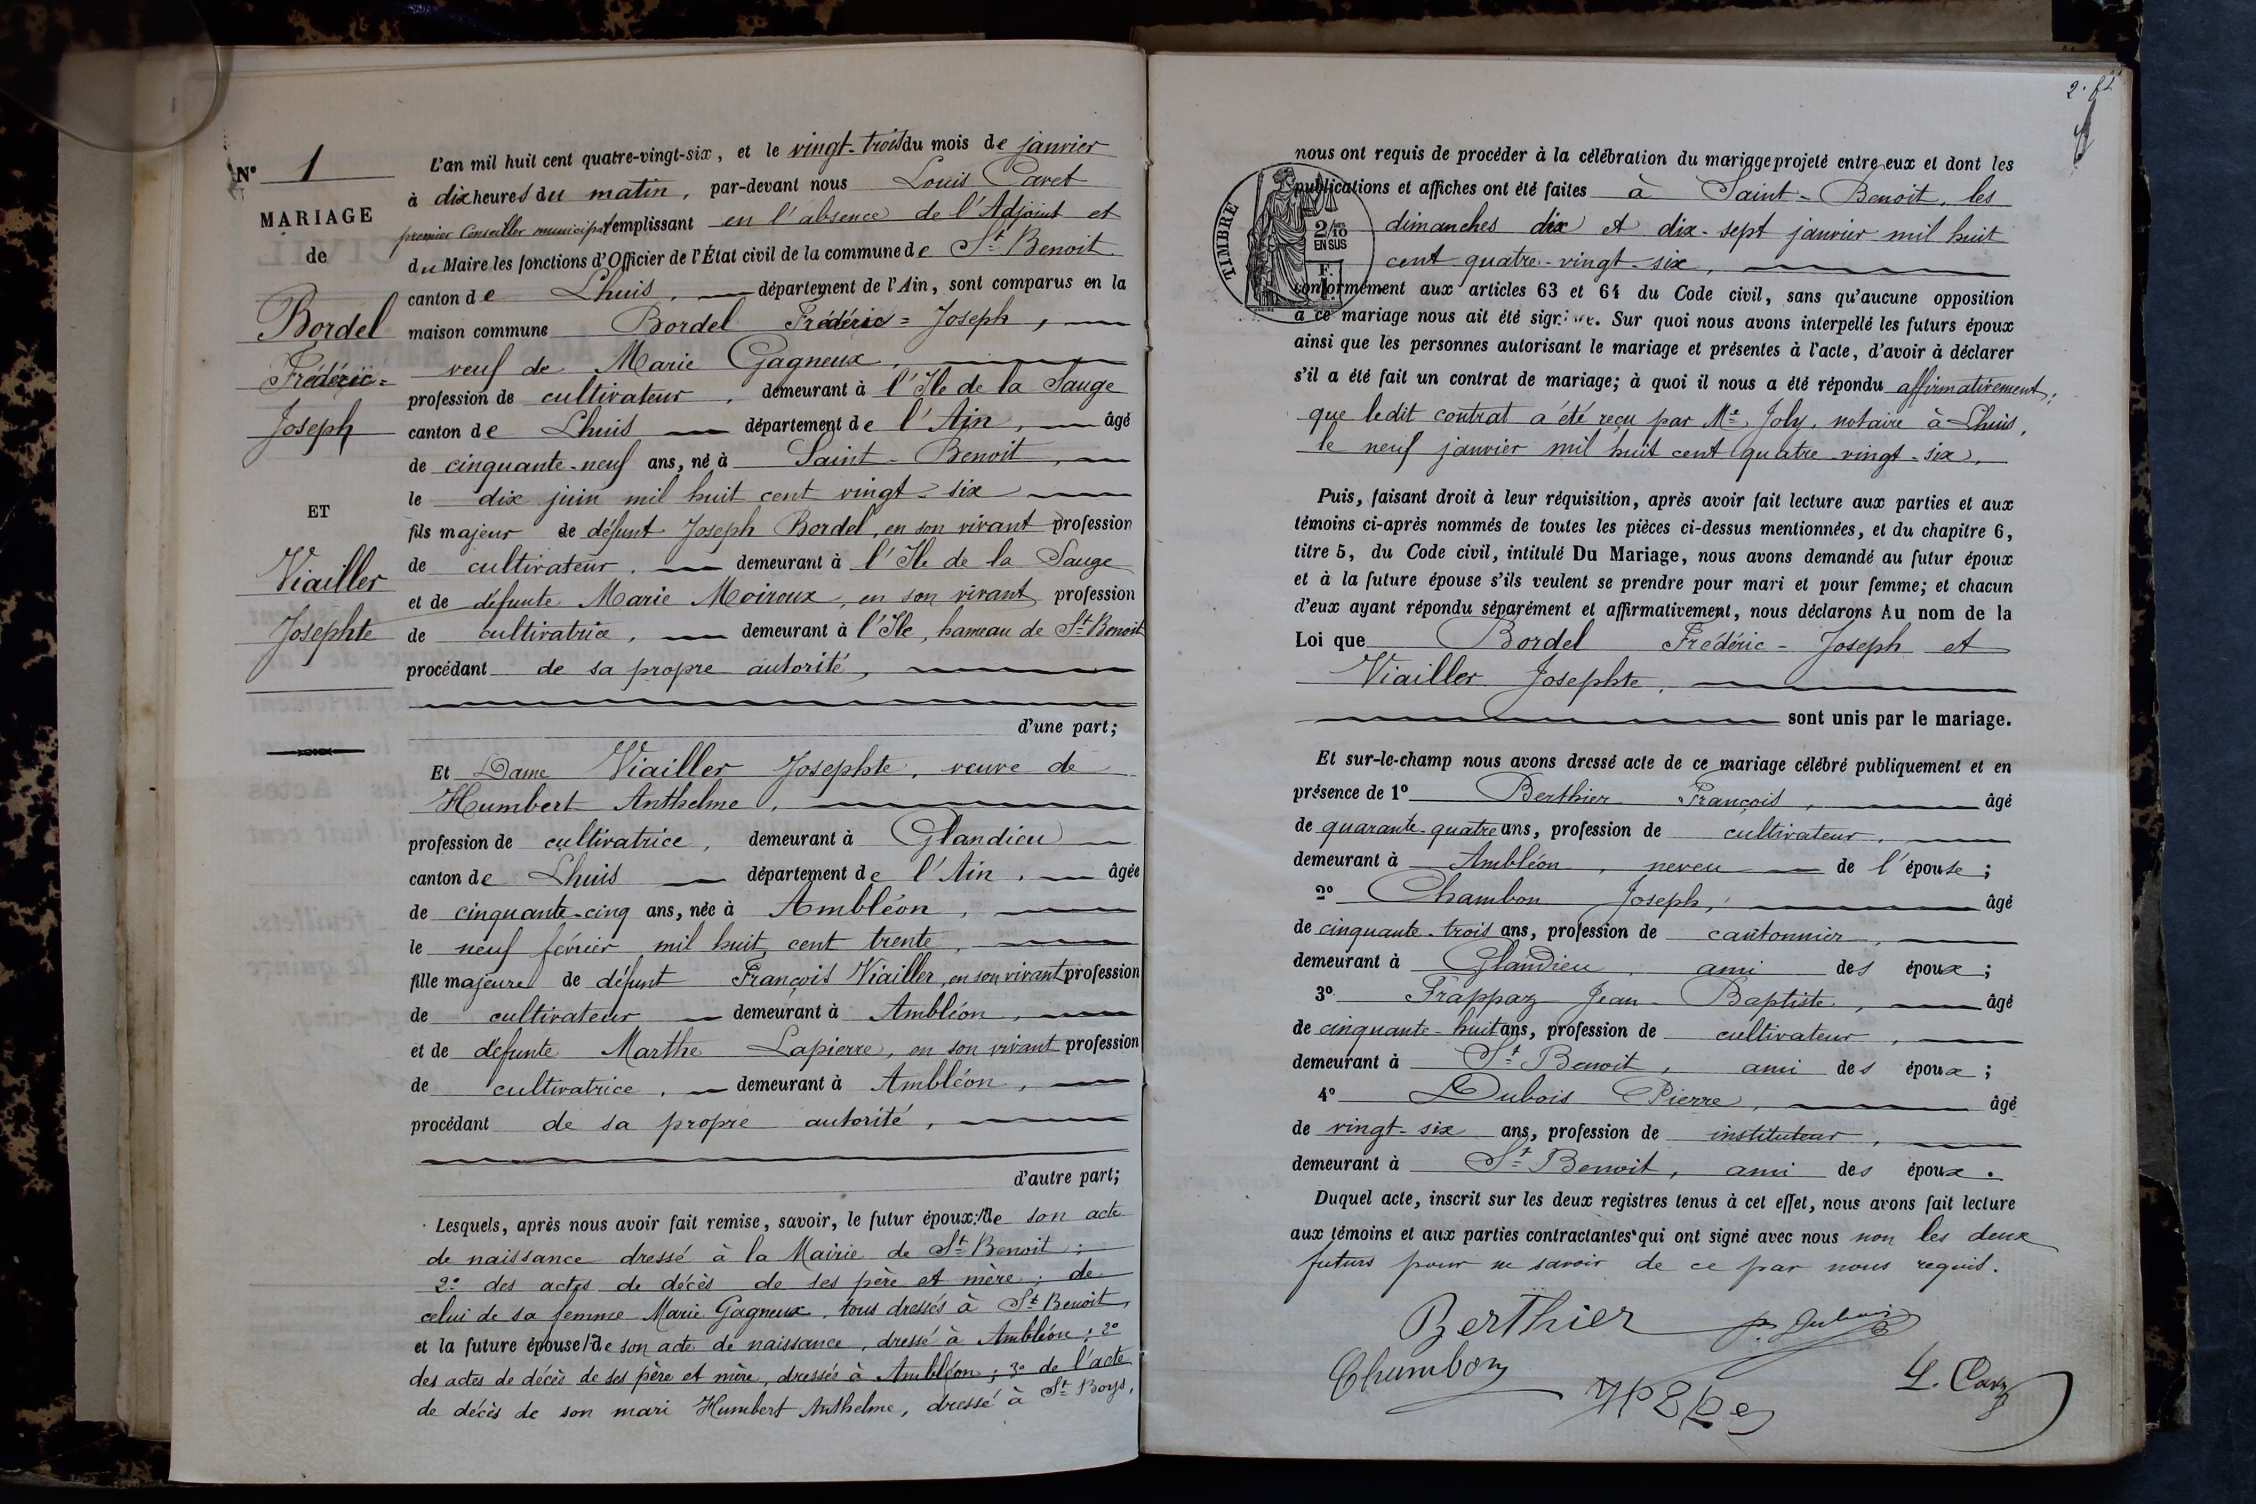 N° 1
MARIAGE
de
Bordel
Frédéric=
Joseph
ET
Viailler
Josephte
L'an mil huit cent quatre-vingt-six, et le vingt-trois du mois de janvier
à dix heures du matin, par-devant nous Louis Cavet
premier Conseiller municipal remplissant en l'absence de l'Adjoint et
du Maire les fonctions d'Officier de l'État civil de la commune de St Benoit
canton de Lhuis, département de l'Ain, sont comparus en la
maison commune Bordel Frédéric=Joseph,
veuf de Marie Gagneux,
profession de cultivateur, demeurant à l'Ile de la Sauge
canton de Lhuis département de l'Ain, âgé
de cinquante-neuf ans, né à Saint-Benoit,
le dix juin mil huit cent vingt-six
fils majeur de défunt Joseph Bordel, en son vivant profession
de cultivateur, demeurant à l'Ile de la Sauge
et de défunte Marie Moiroux, en son vivant profession
de cultivatrice, demeurant à l'Ile, hameau de St Benoit
procédant de sa propre autorité,
d'une part;
Et Dame Viailler Josephte, veuve de
Humbert Anthelme,
profession de cultivatrice, demeurant à Glandieu
canton de Lhuis département de l'Ain, âgée
de cinquante-cinq ans, née à Ambléon,
le neuf février mil huit cent trente,
fille majeure de défunt François Viailler, en son vivant profession
de cultivateur demeurant à Ambléon,
et de défunte Marthe Lapierre, en son vivant profession
de cultivatrice, demeurant à Ambléon,
procédant de sa propre autorité,
d'autre part;
Lesquels, après nous avoir fait remise, savoir, le futur époux: 1° de son acte
de naissance dressé à la Mairie de St Benoit;
2° des actes de décès de ses père et mère; de
celui de sa femme Marie Gagneux, tous dressés à St Benoit,
et la future épouse 1° de son acte de naissance, dressé à Ambléon; 2°
des actes de décès de ses père et mère, dressés à Ambléon; 3° de l'acte
de décès de son mari Humbert Anthelme, dressé à St Boys,
2.
nous ont requis de procéder à la célébration du mariage projeté entre eux et dont les
publications et affiches ont été faites à Saint-Benoit, les
dimanches dix et dix-sept janvier mil huit
cent quatre-vingt-six,
TIMBRE
2/10
EN SUS
F.
conformément aux articles 63 et 64 du Code civil, sans qu'aucune opposition
à ce mariage nous ait été signifiée. Sur quoi nous avons interpellé les futurs époux
ainsi que les personnes autorisant le mariage et présentes à l'acte, d'avoir à déclarer
s'il a été fait un contrat de mariage; à quoi il nous a été répondu affirmativement;
que ledit contrat a été reçu par Me Joly, notaire à Lhuis,
le neuf janvier mil huit cent quatre-vingt-six,
Puis, faisant droit à leur réquisition, après avoir fait lecture aux parties et aux
témoins ci-après nommés de toutes les pièces ci-dessus mentionnées, et du chapitre 6,
titre 5, du Code civil, intitulé Du Mariage, nous avons demandé au futur époux
et à la future épouse s'ils veulent se prendre pour mari et pour femme; et chacun
d'eux ayant répondu séparément et affirmativement, nous déclarons Au nom de la
Loi que Bordel Frédéric-Joseph et
Viailler Josephte,
sont unis par le mariage.
Et sur-le-champ nous avons dressé acte de ce mariage célébré publiquement et en
présence de 1° Berthier François, âgé
de quarante-quatre ans, profession de cultivateur,
demeurant à Ambléon, neveu de l'épouse;
2° Chambon Joseph, âgé
de cinquante-trois ans, profession de cantonnier,
demeurant à Glandieu, ami des époux;
3° Frappaz Jean-Baptiste, âgé
de cinquante-huit ans, profession de cultivateur,
demeurant à St Benoit, ami des époux;
4° Dubois Pierre, âgé
de vingt-six ans, profession de instituteur,
demeurant à St Benoit, ami des époux.
Duquel acte, inscrit sur les deux registres tenus à cet effet, nous avons fait lecture
aux témoins et aux parties contractantes qui ont signé avec nous non les deux
futurs pour ne savoir de ce par nous requis.
Berthier P. Dubois
Chambon L. Cavet